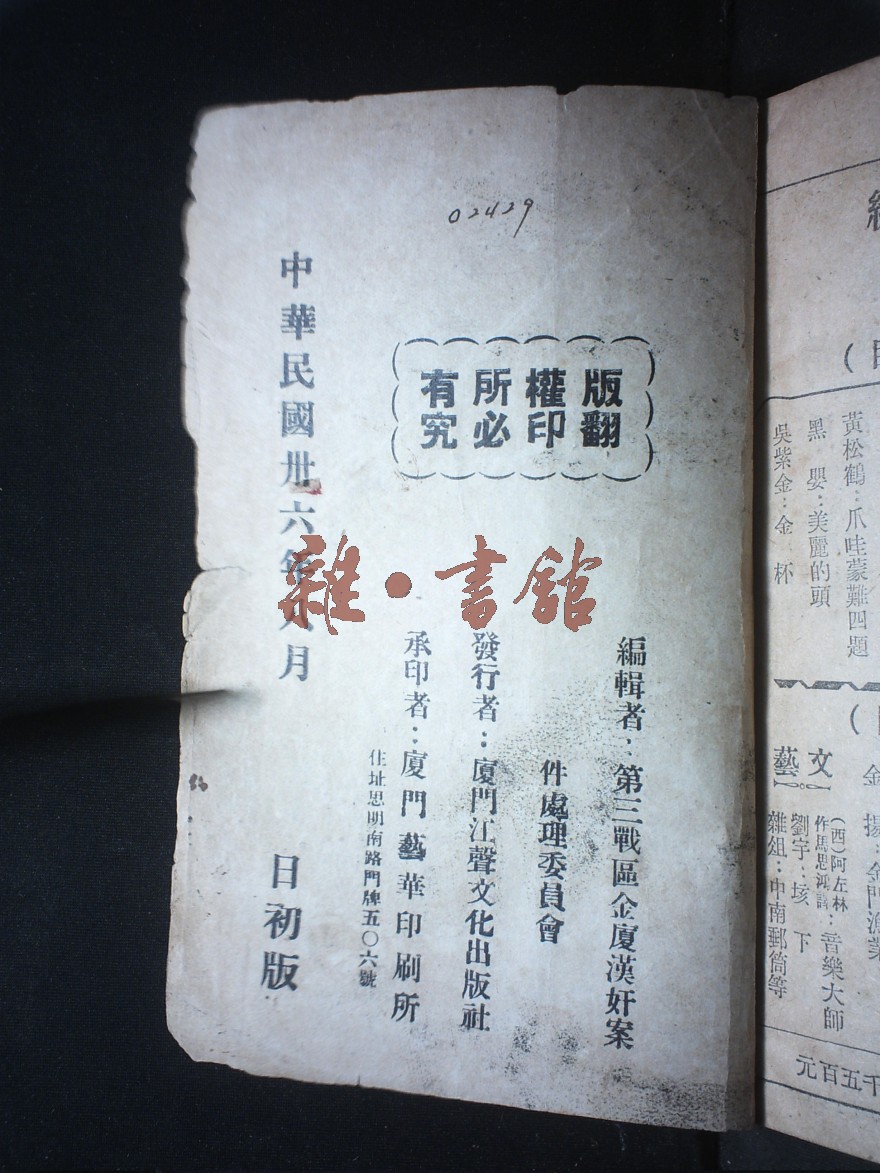 02429
版權所有
翻印必究
編輯者：第三戰區金廈漢奸案
件處理委員會
發行者：廈門江聲文化出版社
承印者：廈門藝華印刷所
住址思明南路門牌五〇六號
中華民國卅六年八月　日初版
雜·書館
黃松鶴：爪哇蒙難四題
黑　嬰：美麗的頭
吳紫金：金　杯
揚：金門漁業
文藝
(西)阿左林
作馬思鴻譯：音樂大師
劉宇：垓　下
雜俎：中南郵筒等
千五百元